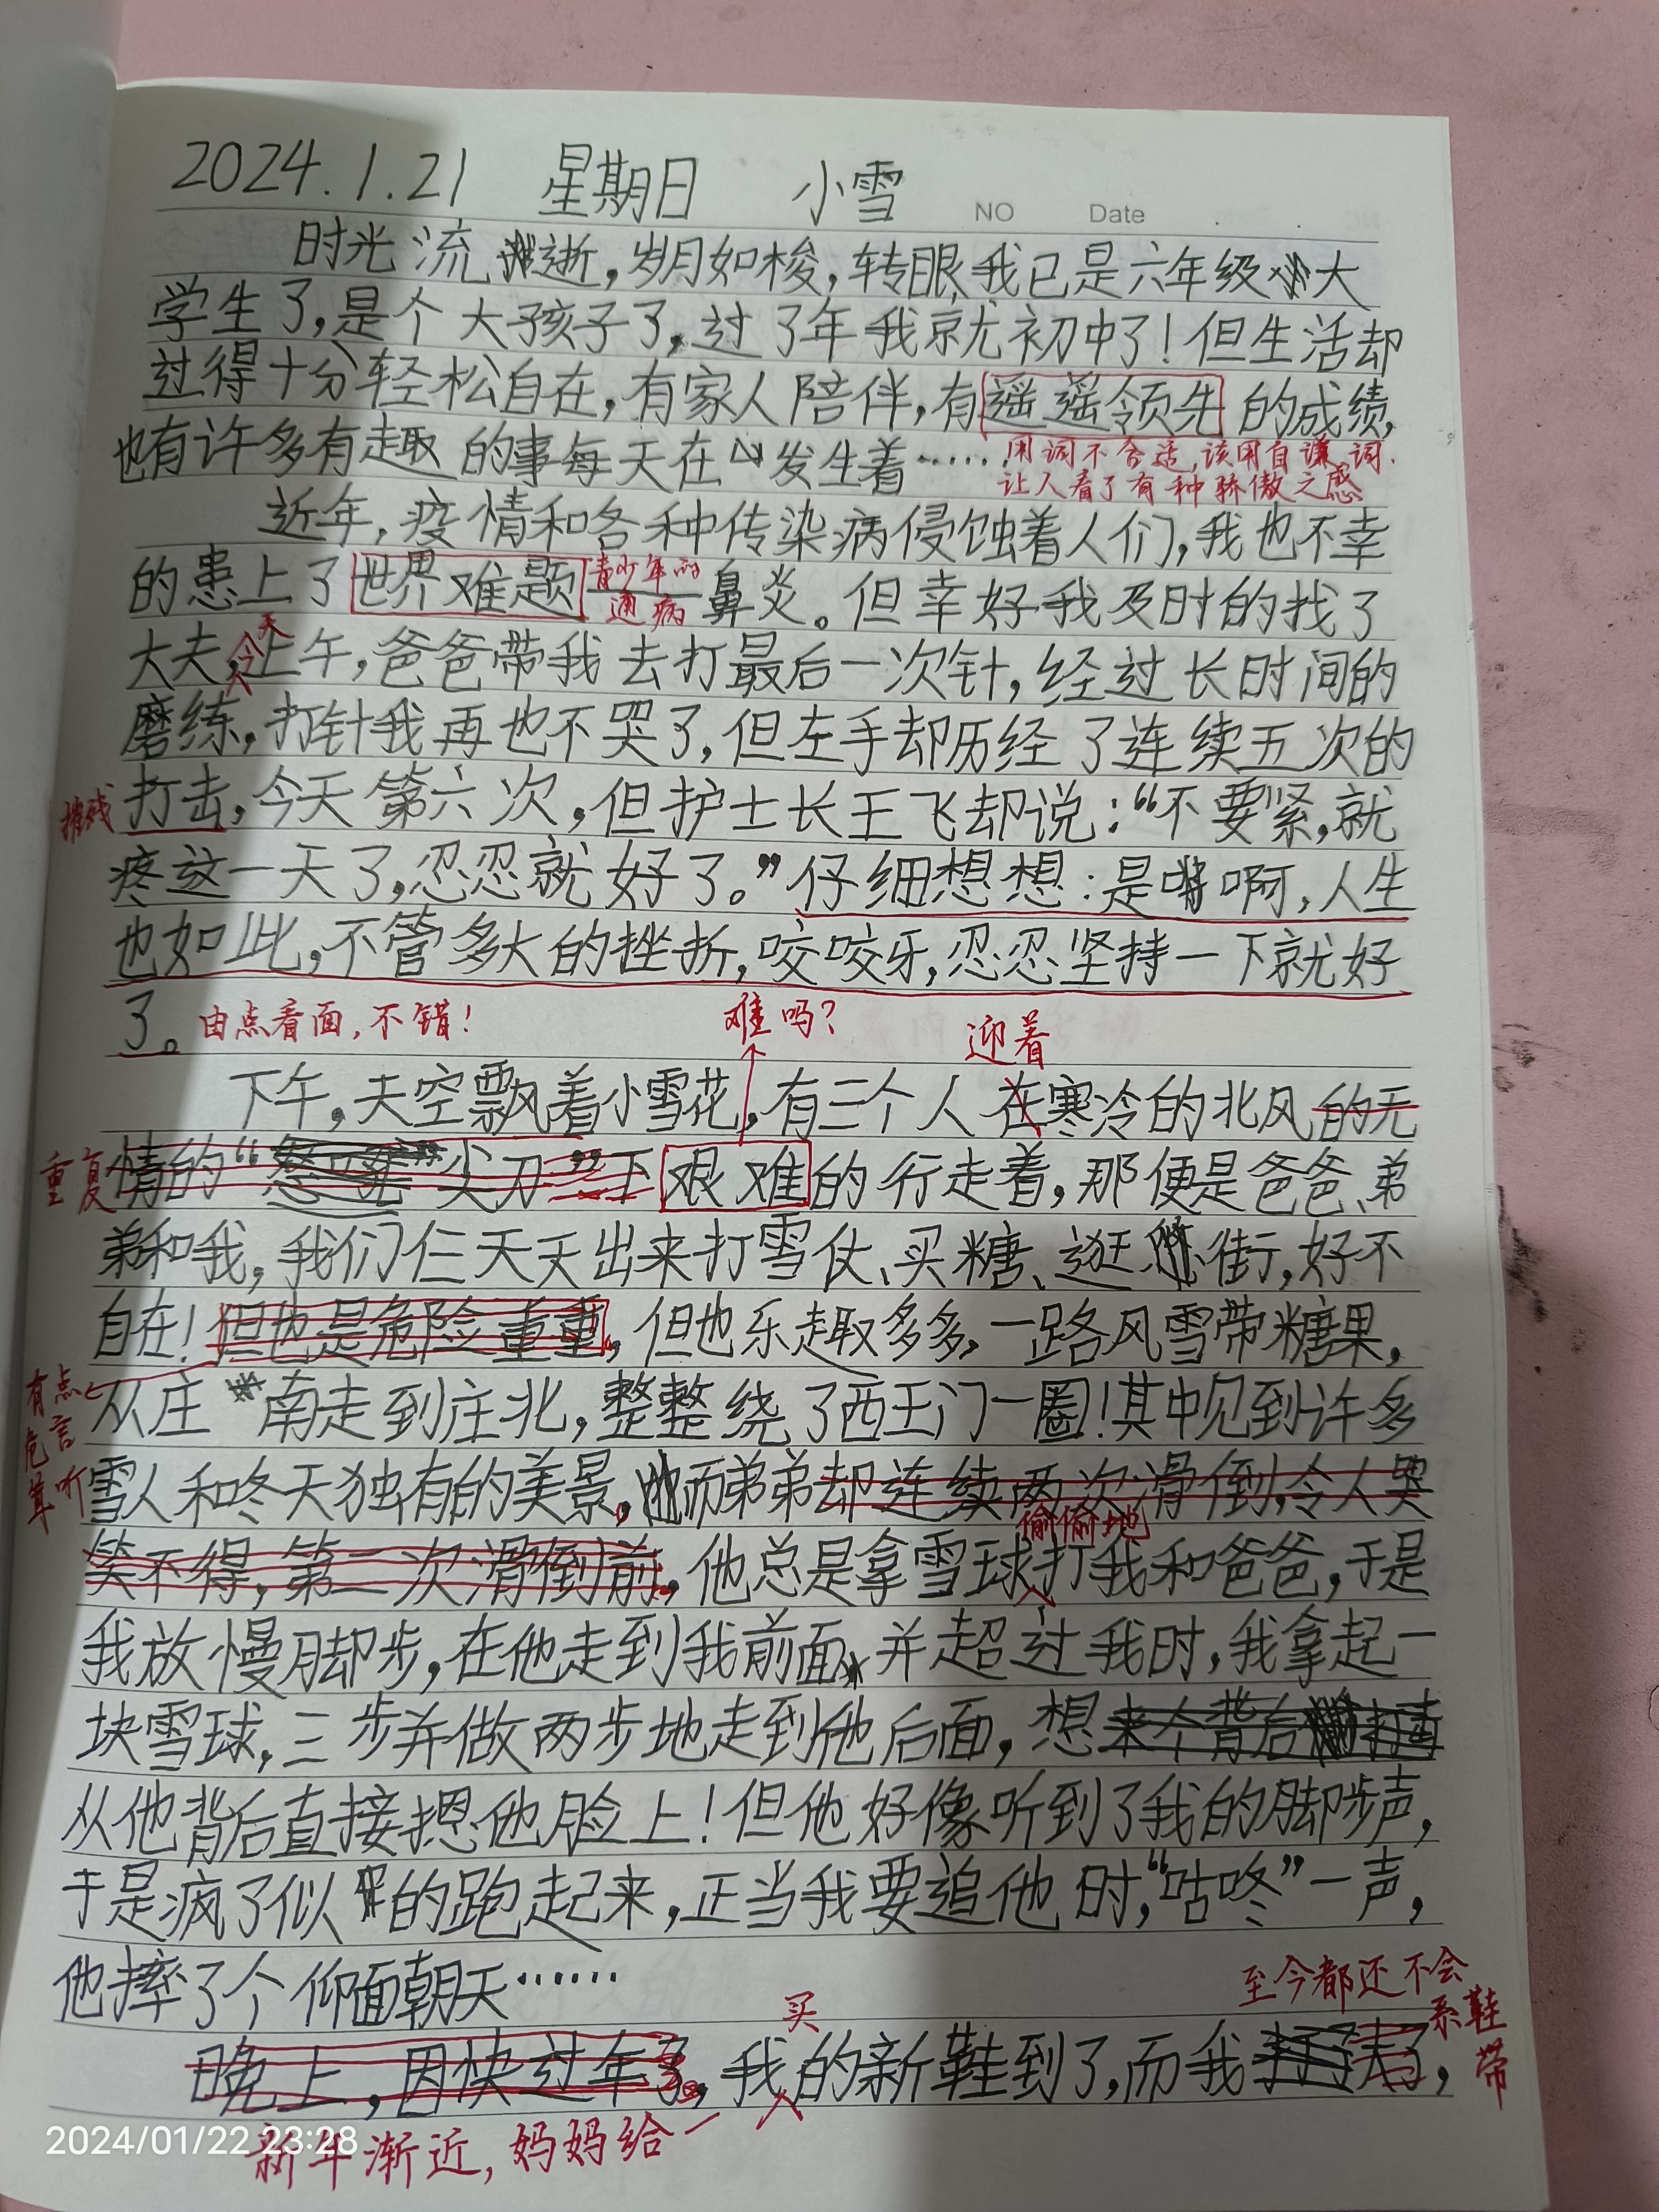 2024.1.21 星期日 小雪
NO Date
时光流逝,岁月如梭,转眼,我已是六年级大
学生了,是个大孩子了,过了年我就初中了!但生活却
过得十分轻松自在,有家人陪伴,有遥遥领先的成绩,
也有许多有趣的事每天在发生着……
用词不合适,该用自谦词.
让人看了有种骄傲之感
近年,疫情和各种传染病侵蚀着人们,我也不幸
的患上了世界难题鼻炎。但幸好我及时的找了
青少年的
通病
大夫,上午,爸爸带我去打最后一次针,经过长时间的
今天
磨练,打针我再也不哭了,但左手却历经了连续五次的
打击,今天第六次,但护士长王飞却说:“不要紧,就
摧残
疼这一天了,忍忍就好了。”仔细想想:是啊,人生
也如此,不管多大的挫折,咬咬牙,忍忍坚持一下就好
了。
由点看面,不错!
难吗?
迎着
下午,天空飘着小雪花,有三个人在寒冷的北风的无
情的“尖刀”下艰难的行走着,那便是爸爸、弟
重复
弟和我,我们仨天天出来打雪仗、买糖、逛街,好不
自在!但也是危险重重,但也乐趣多多,一路风雪带糖果,
从庄南走到庄北,整整绕了西王门一圈!其中见到许多
有点
危言
耸听
雪人和冬天独有的美景,而弟弟却连续两次滑倒,令人哭
笑不得,第二次滑倒前,他总是拿雪球打我和爸爸,于是
偷偷地
我放慢脚步,在他走到我前面,并超过我时,我拿起一
块雪球,三步并做两步地走到他后面,想
从他背后直接摁他脸上!但他好像听到了我的脚步声,
于是疯了似的跑起来,正当我要追他时,“咕咚”一声,
他摔了个仰面朝天……
至今都还不会
系鞋
带
买
晚上,因快过年了,我的新鞋到了,而我
新年渐近,妈妈给
2024/01/22 23:28